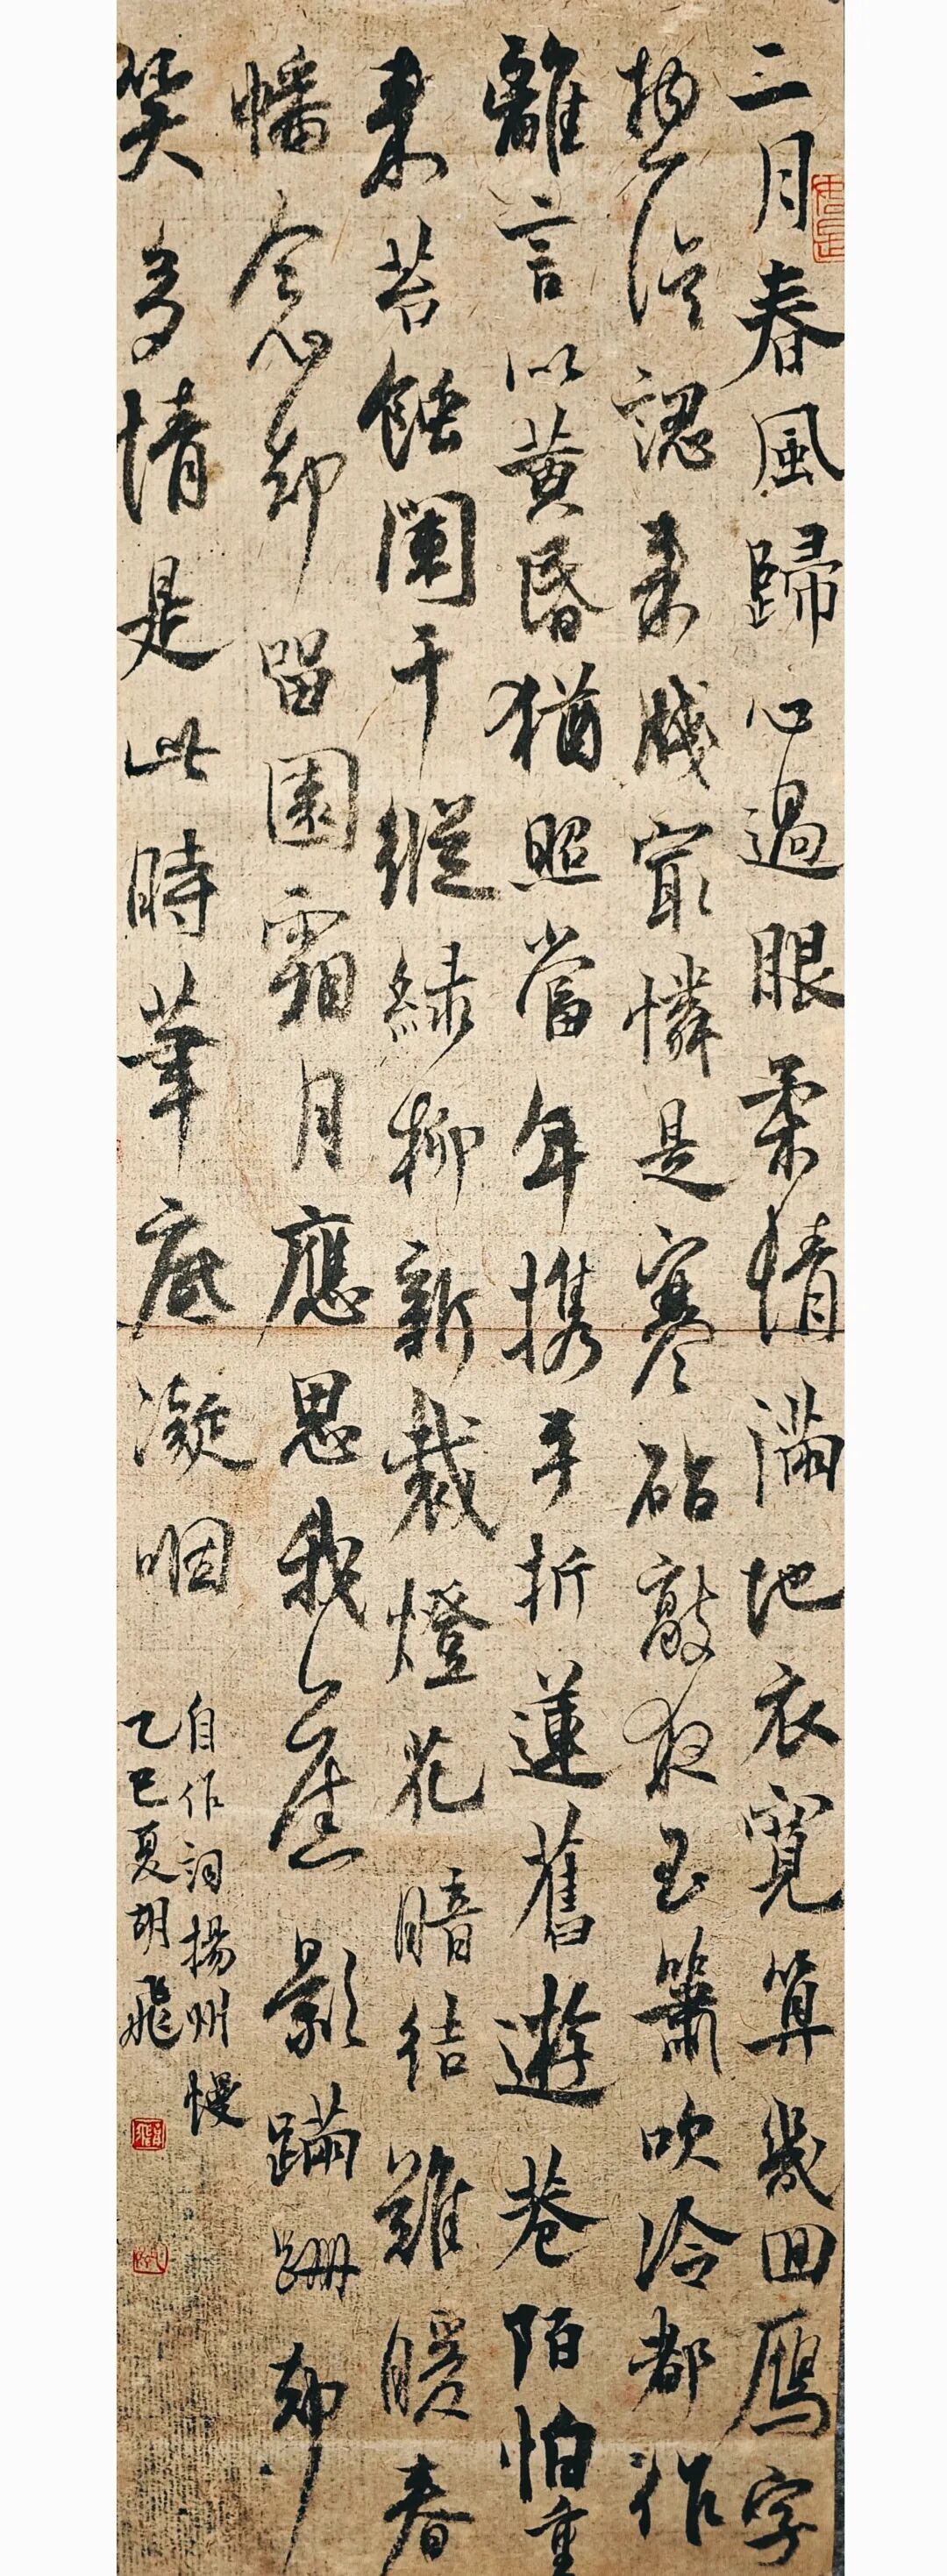 三月春風歸心過眼柔情滿地衣寬算幾回鴈字
認牋最憐是寒砧敲夜玉簫吹冷都作
離言以黃昏猶照當年攜手折蓮舊遊巷陌怕重
來苔蝕闌干縱綠柳新裁燈花暗結難暖春
幡念却留園霜月應思我影蹣跚却
笑多情是此時筆底凝咽
自作詞揚州慢
乙巳夏胡飛